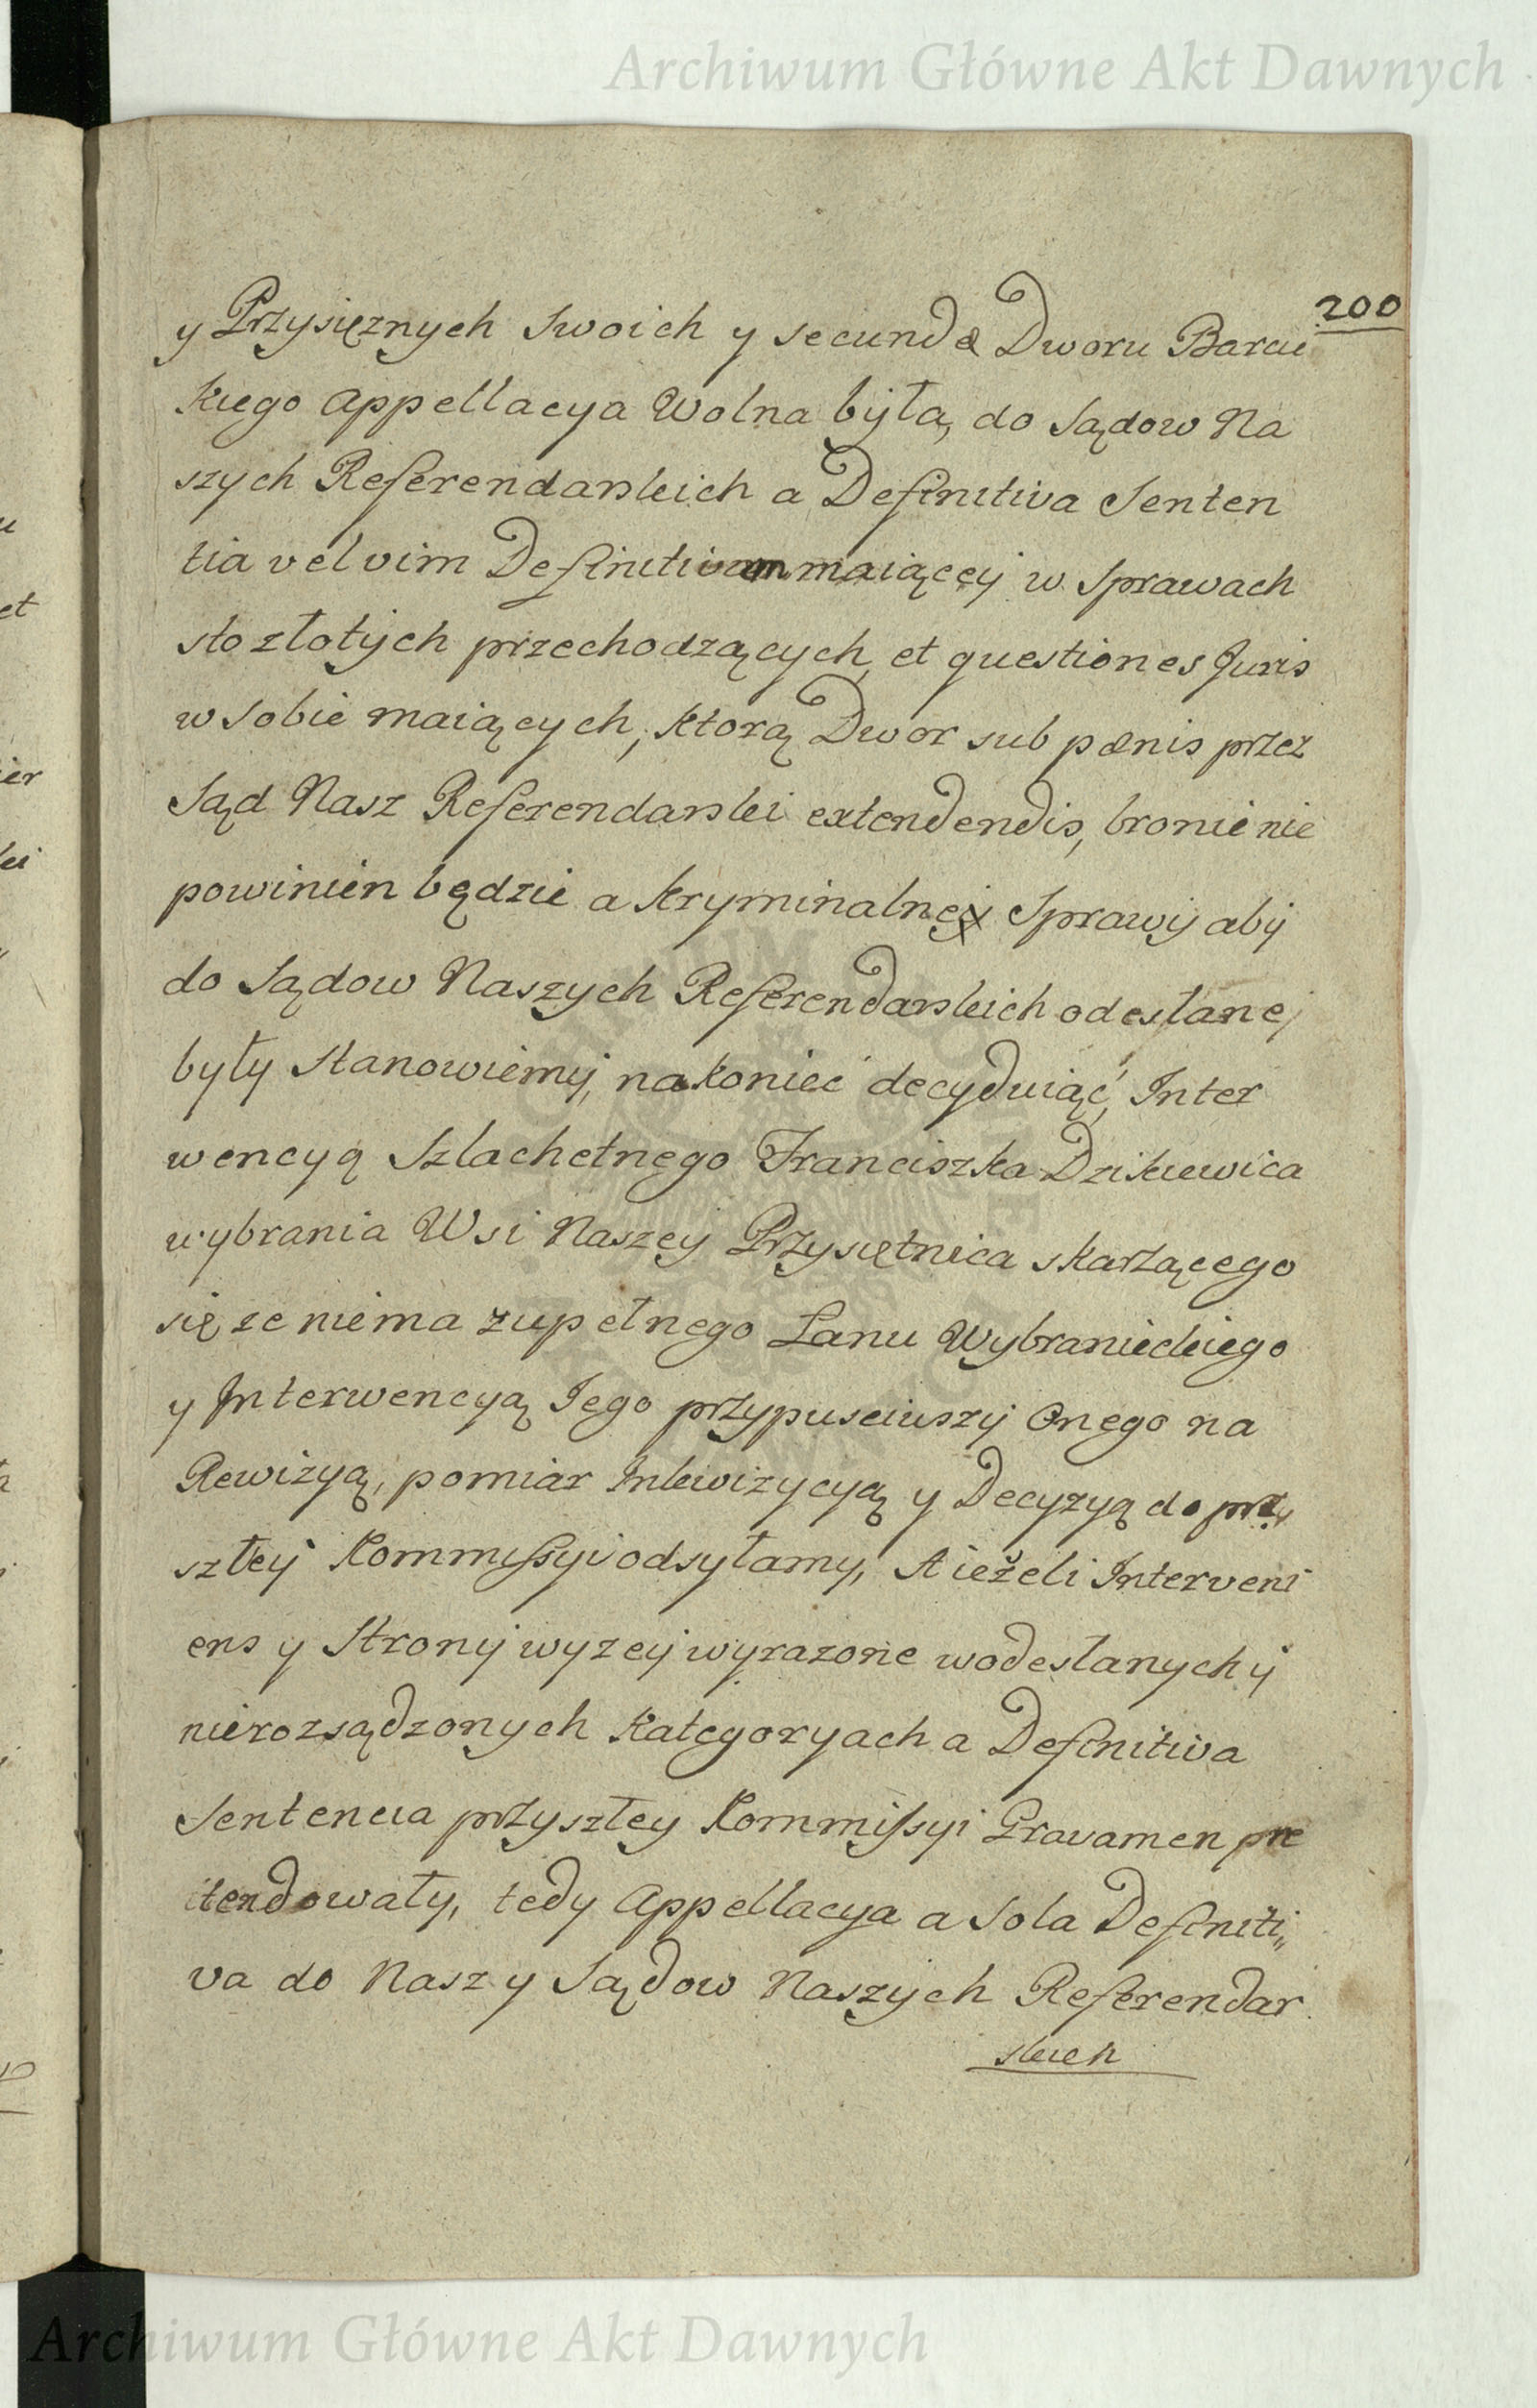 Archiwum Główne Akt Dawnych
200
y Przysięznych Swoich y secunda Dworu Barcic
kiego Appellacya Wolna była, do Sądow Na
szych Referendarskich a Definitiva Senten
tia vel vim Definitivam maiącey w Sprawach
sto złotych przechodzących, et questiones Juris
w sobie maiących, ktorą Dwor sub pœnis przez
Sąd Nasz Referendarski extendendis, bronić nie
powinien będzie a kryminalney Sprawy aby
do Sądow Naszych Referendarskich odesłanej
były Stanowiemy, nakoniec decyduiąć, Inter
wencyą Szlachetnego Franciszka Dzikiewica
wybrania Wsi Naszey Przysietnica skarzącego
się ze niema zupełnego Lanu Wybranieckiego
y Interwencyą Iego przypusciwszy Onego na
Rewizyą, pomiar Inkwizycyą y Decyzyą do przy
szłey Kommissyi odsyłamy, A ieżeli Interveni
ens y Strony wyzey wyrazone wodesłanych y
nierozsądzonych Kategoryach a Definitiva
Sentencia przyszłey Kommissyi Gravamen pre
tendowały, tedy Appellacya a Sola Definiti„
va do Nas z y Sądow Naszych Referendar
skich
Archiwum Główne Akt Dawnych